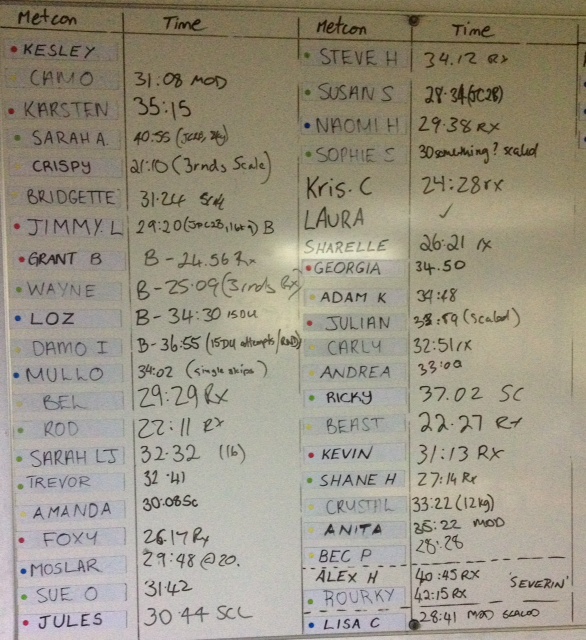 Metcon Time
KESLEY
CAMO 31:08 MOD
KARSTEN 35:15
SARAH A. 40:55
CRISPY 21:10 (3rnds Scale)
BRIDGETTE 31:24
JIMMY. L 29:20 B
GRANT B B-24.56 Rx
WAYNE B-25:09 (3rnds Rx)
LOZ B-34:30 15DU
DAMO I B-36:55 (15DU attempts/RND)
MULLO 34:02 (single skips)
BEL 29:29 RX
ROD 22:11 RX
SARAH LJ 32:32 (16)
TREVOR 32.41
AMANDA 30:08 SC
FOXY 26.17 Rx
MOSLAR 29:48 @20.
SUE O 31.42
JULES 30.44 SCL
Metcon Time
STEVE H 34.12 Rx
SUSAN S 28.34
NAOMI H 29.38 RX
SOPHIE S 30 something? scaled
Kris. C 24:28 rx
LAURA ✓
SHARELLE 26:21 rx
GEORGIA 34.50
ADAM K
JULIAN (scaled)
CARLY 32:51 rx
ANDREA 33:00
RICKY 37.02 SC
BEAST 22.27 RX
KEVIN 31:13 RX
SHANE H 27:14 Rx
CRYSTAL 33:22 (12kg)
ANITA 35:22 MOD
BEC P 28:28
ALEX H 40:45 RX 'SEVERIN'
ROURKY 42:15 RX
LISA C 28:41 MOD SCALED